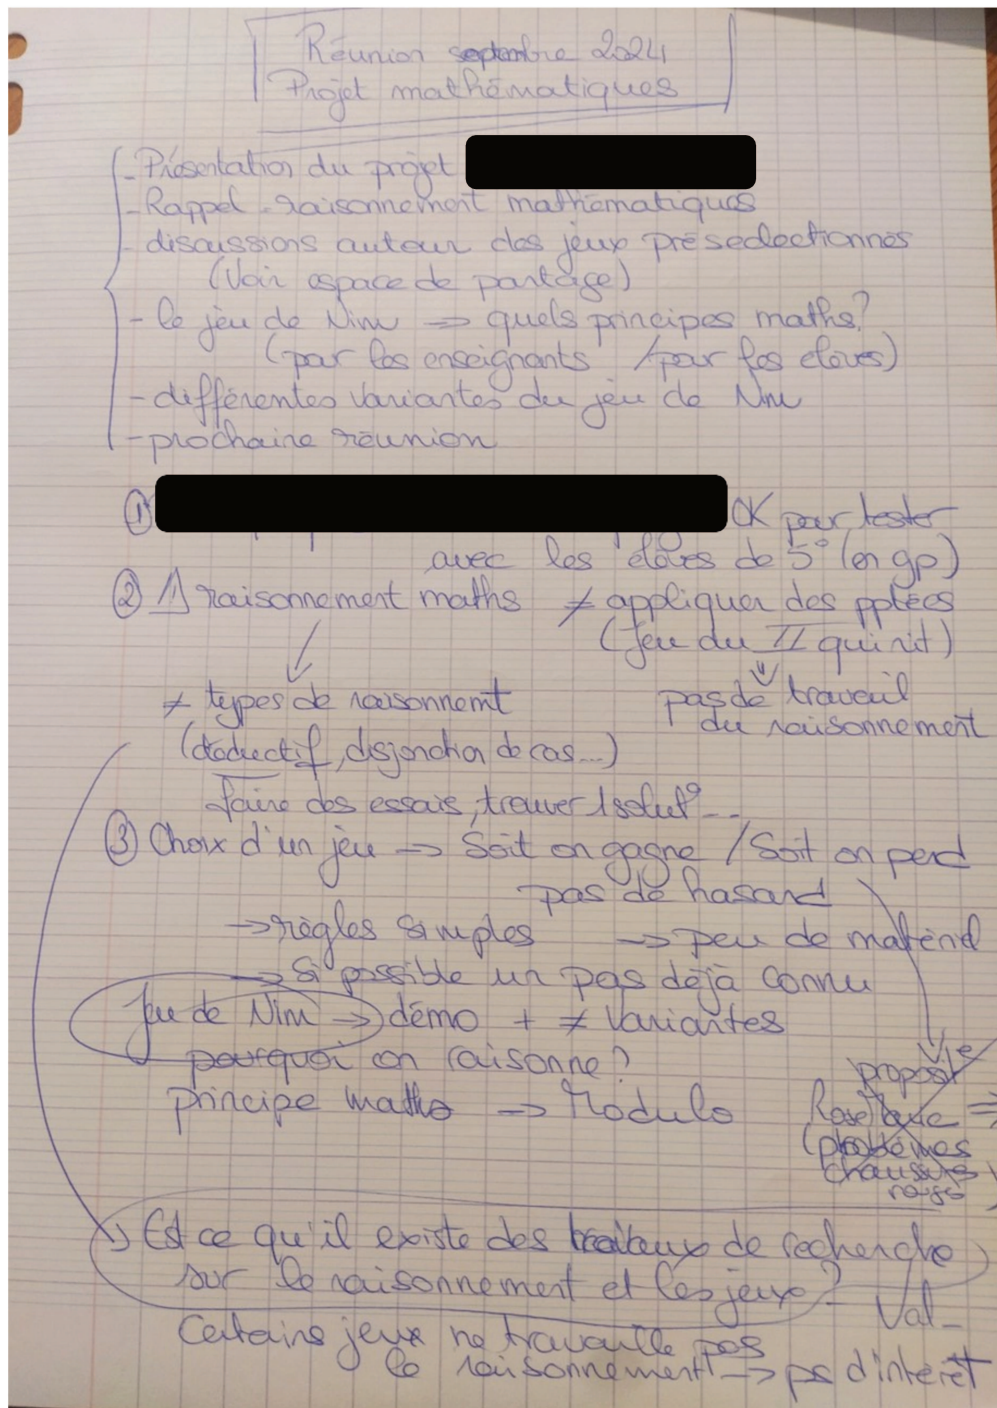 Réunion septembre 2024
Projet mathématiques
- Présentation du projet
- Rappel - raisonnement mathématiques
- discussions autour des jeux préselectionnés
(Voir espace de partage)
- le jeu de Nim => quels principes maths?
(pour les enseignants /pour les élèves)
- différentes variantes du jeu de Nim
- prochaine réunion
① OK pour tester
avec les élèves de 5° (en gp)
② 1) raisonnement maths ≠ appliquer des pptées
(jeu du II qui rit)
≠ types de raisonnemt pas de travail
du raisonnement
(déductif, disjonction de cas...)
faire des essais, trouver 1 solut°...
③ Choix d'un jeu → Soit on gagne / Soit on perd
pas de hasard
→ règles simples → peu de matériel
→ Si possible un pas déjà connu
Jeu de Nim → démo + ≠ variantes
pourquoi on raisonne?
principe maths → Modulo
(problèmes
chaussure
rouge
→ Est ce qu'il existe des travaux de recherche
sur le raisonnement et les jeux? - Val -
Certains jeux ne travaille pas
le raisonnement → ps d'intérêt